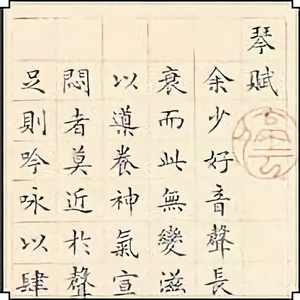 琴賦
余少好音聲長
衰而此無變滋
以導養神氣宣
悶者莫近於聲
足則吟咏以肆